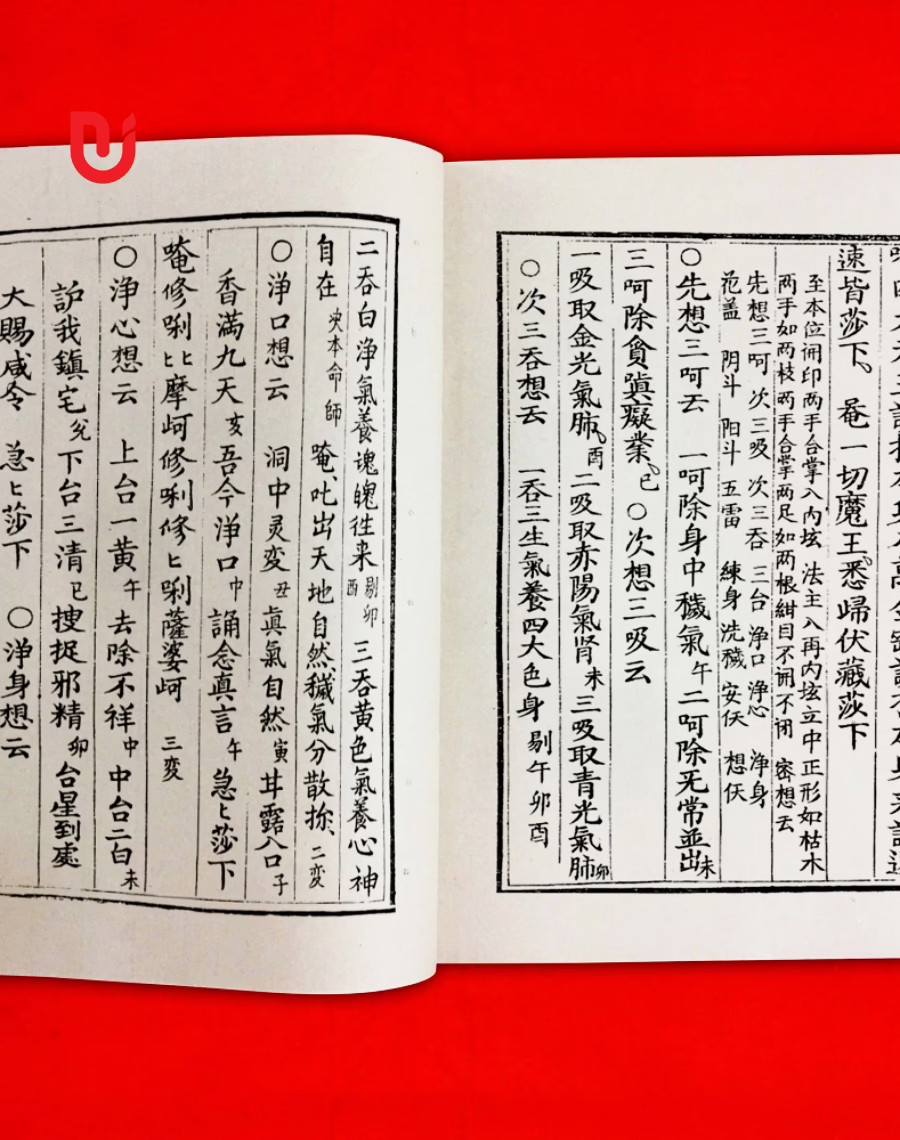 速皆莎下 菴一切魔王悉歸伏藏莎下
至本位開印两手合掌入内垓 法主入再内垓立中正形如枯木
两手如两枝 两手合掌两足如两根 紺目不開不闭 密想云
先想三呵 次三吸 次三吞 三台 浄口 浄心 浄身
范盖 阴斗 阳斗 五雷 練身 洗穢 安仸 想仸
○先想三呵云 一呵除身中穢氣午二呵除旡常並出未
三呵除貪嗔癡業巳○次想三吸云
一吸取金光氣肺酉二吸取赤陽氣肾未三吸取青光氣肺卯
○次三吞想云 一吞三生氣養四大色身 剔午卯酉
二吞白浄氣養魂魄徃来剔卯酉三吞黄色氣養心神
自在 本命師 唵吡出天地自然穢氣分散 二变
○浄口想云 洞中灵变丑真氣自然寅甘露入口子
香满九天亥吾今浄口巾誦念真言午急匕莎下
唵修唎匕摩岢修唎修匕唎薩婆岢 三变
○浄心想云 上台一黄午去除不祥中中台二白未
䚽我鎮宅 下台三清巳捜捉邪精卯台星到處
大賜咸令 急匕莎下 ○浄身想云